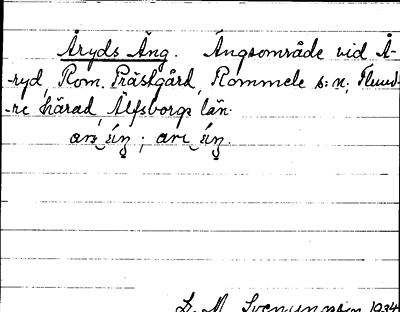 Åryds Äng. Ängsområde vid Å-
-ryd, Rom. Prästgård, Rommele s:n; Flund-
-re härad, Älfsborgs län.
L. M. Svenungsson 1934